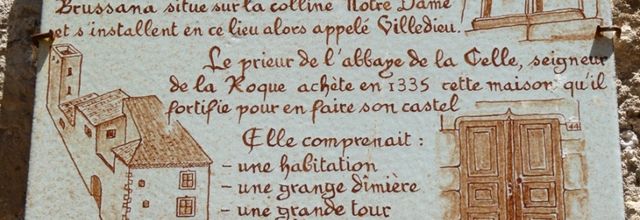 Brussana située sur la colline Notre Dame
et s'installent en ce lieu alors appelé Villedieu.
Le prieur de l'abbaye de la Celle, seigneur
de la Roque achète en 1335 cette maison qu'il
fortifie pour en faire son castel
Elle comprenait :
- une habitation
- une grange dîmière
- une grande tour
44